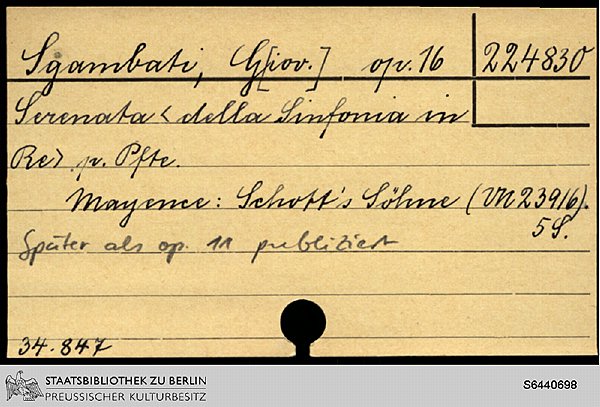 Sgambati, G[iov.] op. 16 224830
Serenata < della Sinfonia in
Re> p. Pfte.
Mayence: Schott's Söhne (VN 23916).
5 S.
Später als op. 11 publiziert
34.847
STAATSBIBLIOTHEK ZU BERLIN
PREUSSISCHER KULTURBESITZ
S6440698